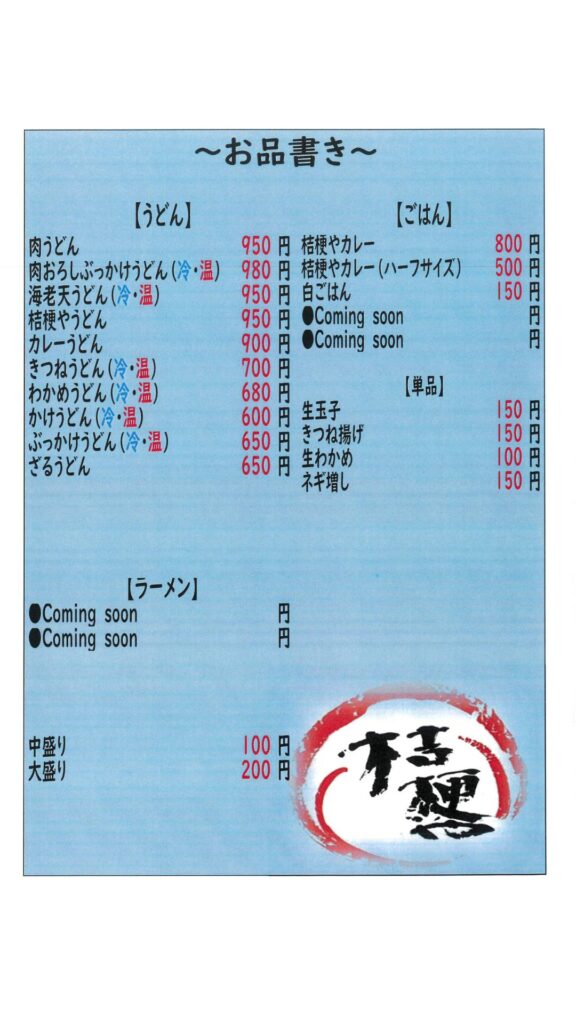 ～お品書き～
【うどん】
肉うどん 950 円
肉おろしぶっかけうどん(冷・温) 980 円
海老天うどん(冷・温) 950 円
桔梗やうどん 950 円
カレーうどん 900 円
きつねうどん(冷・温) 700 円
わかめうどん(冷・温) 680 円
かけうどん(冷・温) 600 円
ぶっかけうどん(冷・温) 650 円
ざるうどん 650 円
【ラーメン】
●Coming soon 円
●Coming soon 円
中盛り 100 円
大盛り 200 円
【ごはん】
桔梗やカレー 800 円
桔梗やカレー(ハーフサイズ) 500 円
白ごはん 150 円
●Coming soon 円
●Coming soon 円
【単品】
生玉子 150 円
きつね揚げ 150 円
生わかめ 100 円
ネギ増し 150 円
桔梗や